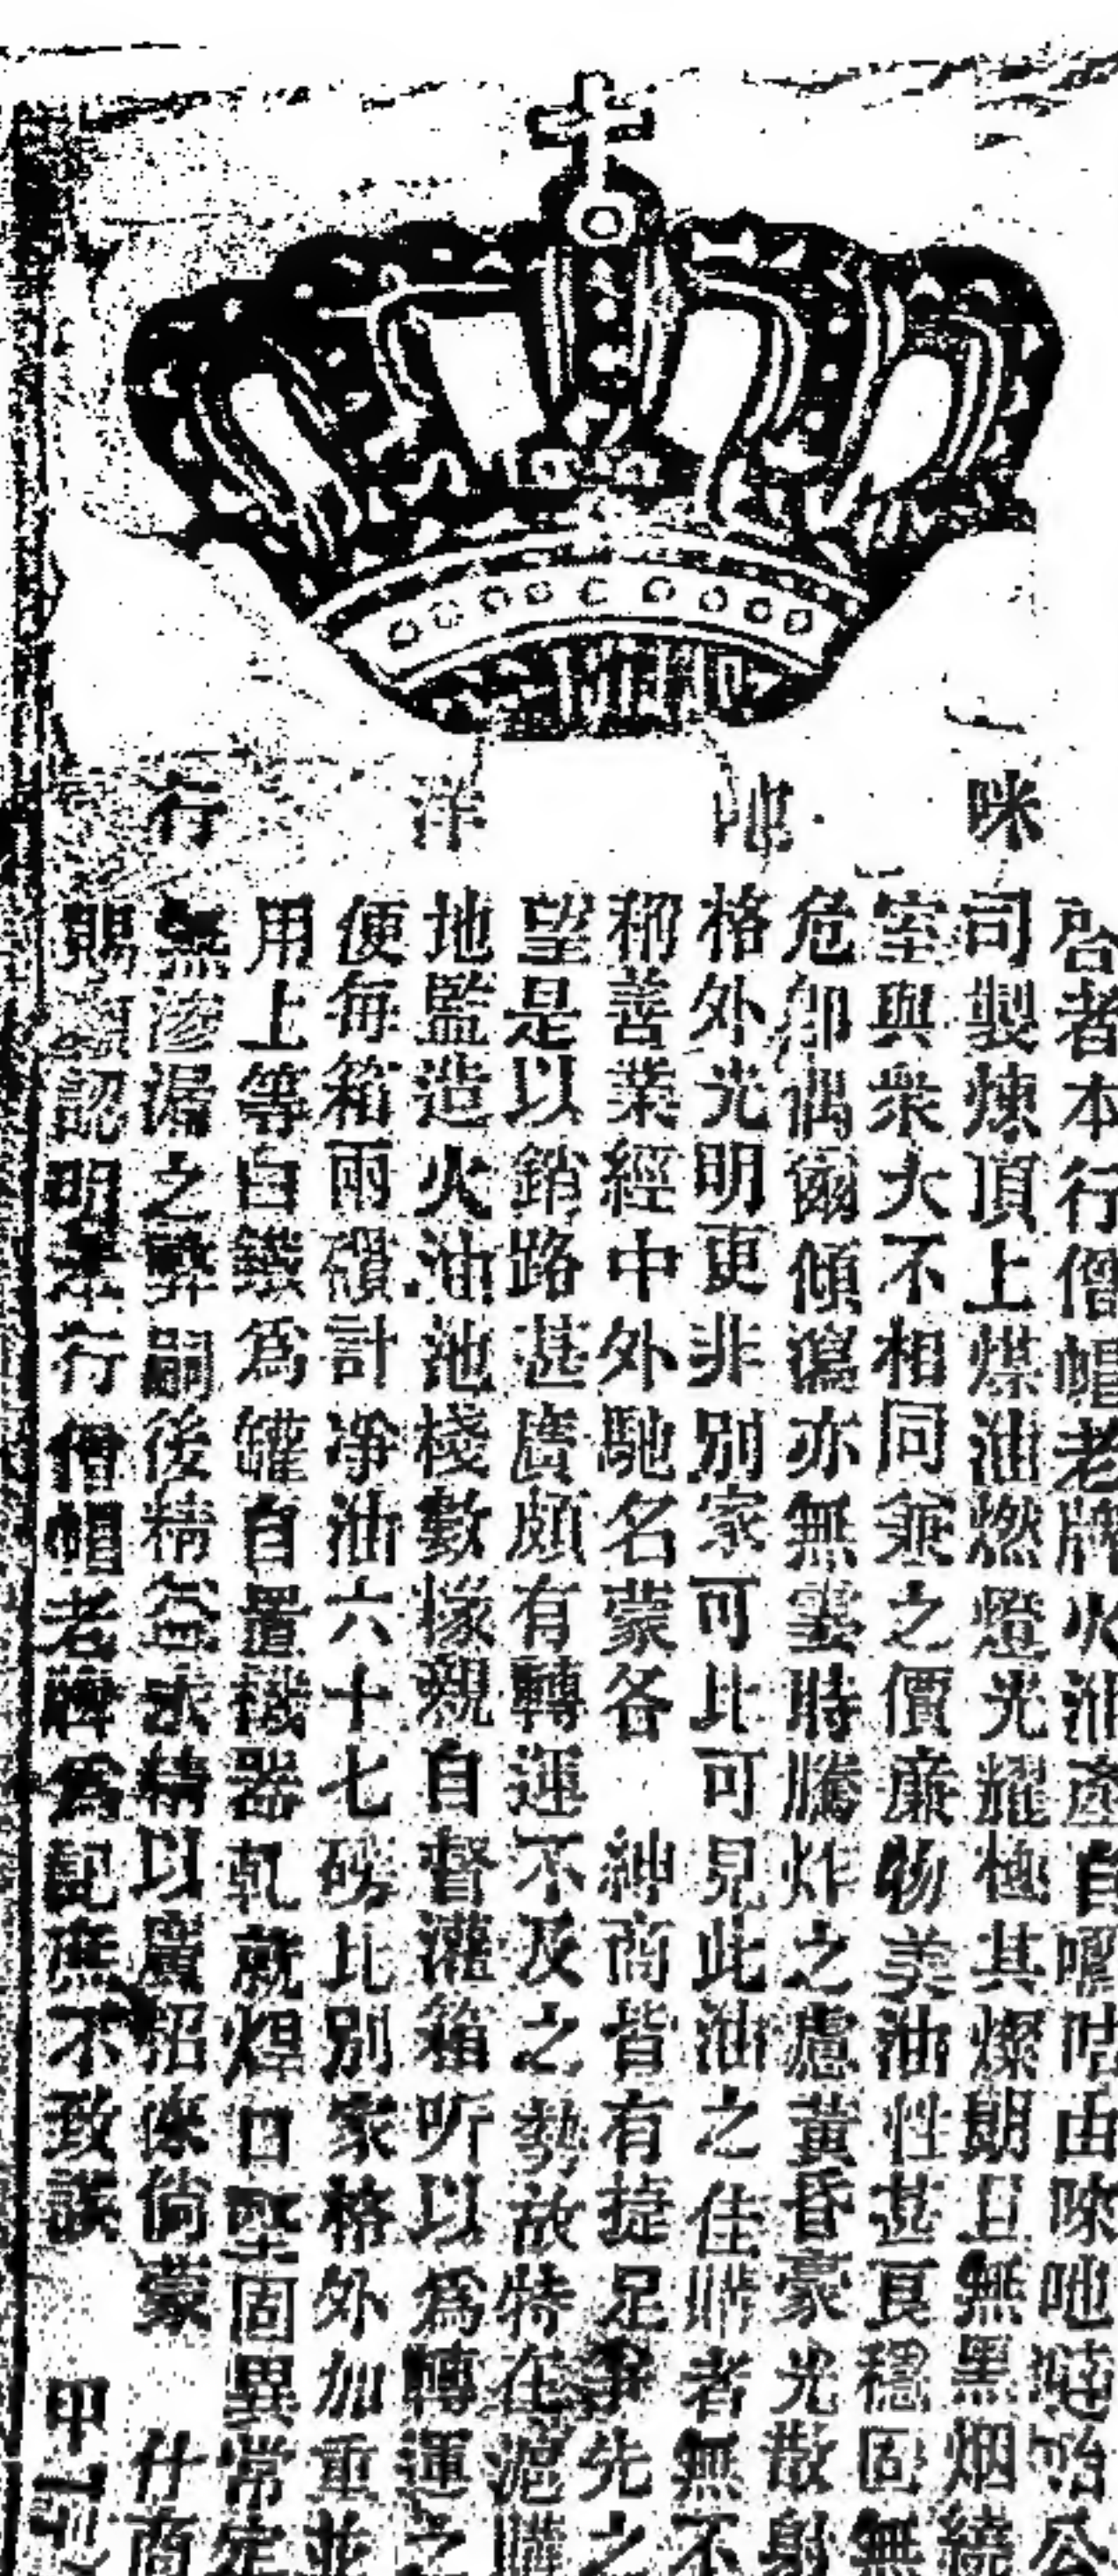 咪吔洋行
啓者本行僧帽老牌火油產自嚼咕由㖿吔噠咍公
司製煉頂上煤油燃燈光耀極其燦朗且無黑烟繞
室與衆大不相同兼之價廉物美油性甚良穩固無
危卽偶爾傾瀉亦無霎時騰炸之慮黃昏豪光散射
格外光明更非別家可比可見此油之佳購者無不
稱善業經中外馳名蒙各 紳商皆有捷足爭先之
望是以銷路甚廣頗有轉運不及之勢故特在滬購
地監造火油池棧數椽親自督灌箱听以爲轉運之
便每箱兩礶計净油六十七磅比別家格外加重並
用上等白鐵爲罐自置機器軋就焊口堅固異常定
無滲漏之弊嗣後精益求精以廣招徠倘蒙 仕商
賜顧認明本行僧帽老牌爲記庶不致誤 甲